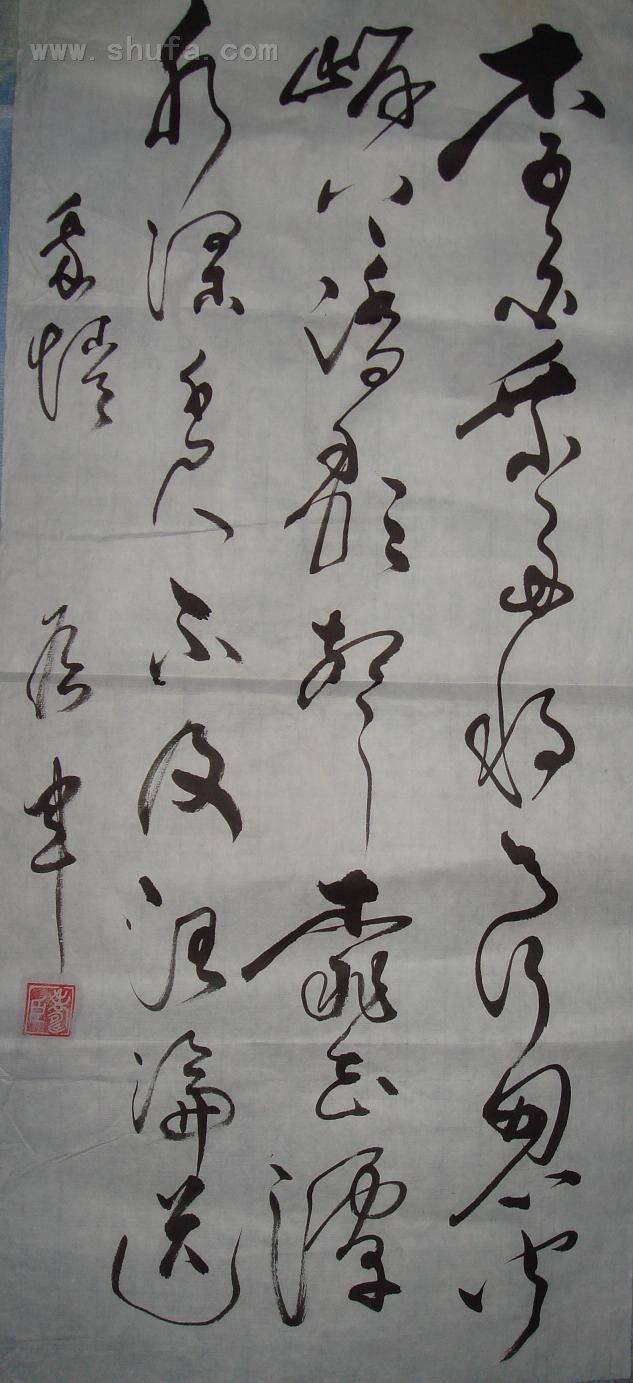 www.shufa.com
李白乘舟将欲行忽闻
岸上踏歌声桃花潭
水深千尺不及汪伦送
我情